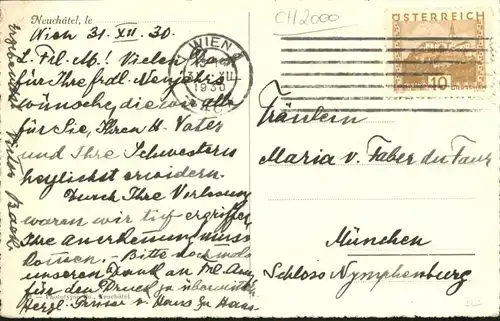 Neuchâtel, le
Wien 31. XII. 30.
L. Frl. M! Vielen Dank
für Ihre frdl. Neujahrs
wünsche, die wir alle
für Sie, Ihren H. Vater
und Ihre Schwestern
herzlichst erwidern.
Durch Ihre Vorlesung
waren wir tief ergriffen
Ihre Anerkennung muss
kommen. – Bitte noch
unseren Dank an Frl.
für den Druck zu
Herzl. Grüsse v. Haus zu Haus
Phototypie Co., Neuchâtel
CH2000
WIEN
1930
ÖSTERREICH
10
Fräulein
Maria v. Faber du Faur
München
Schloss Nymphenburg